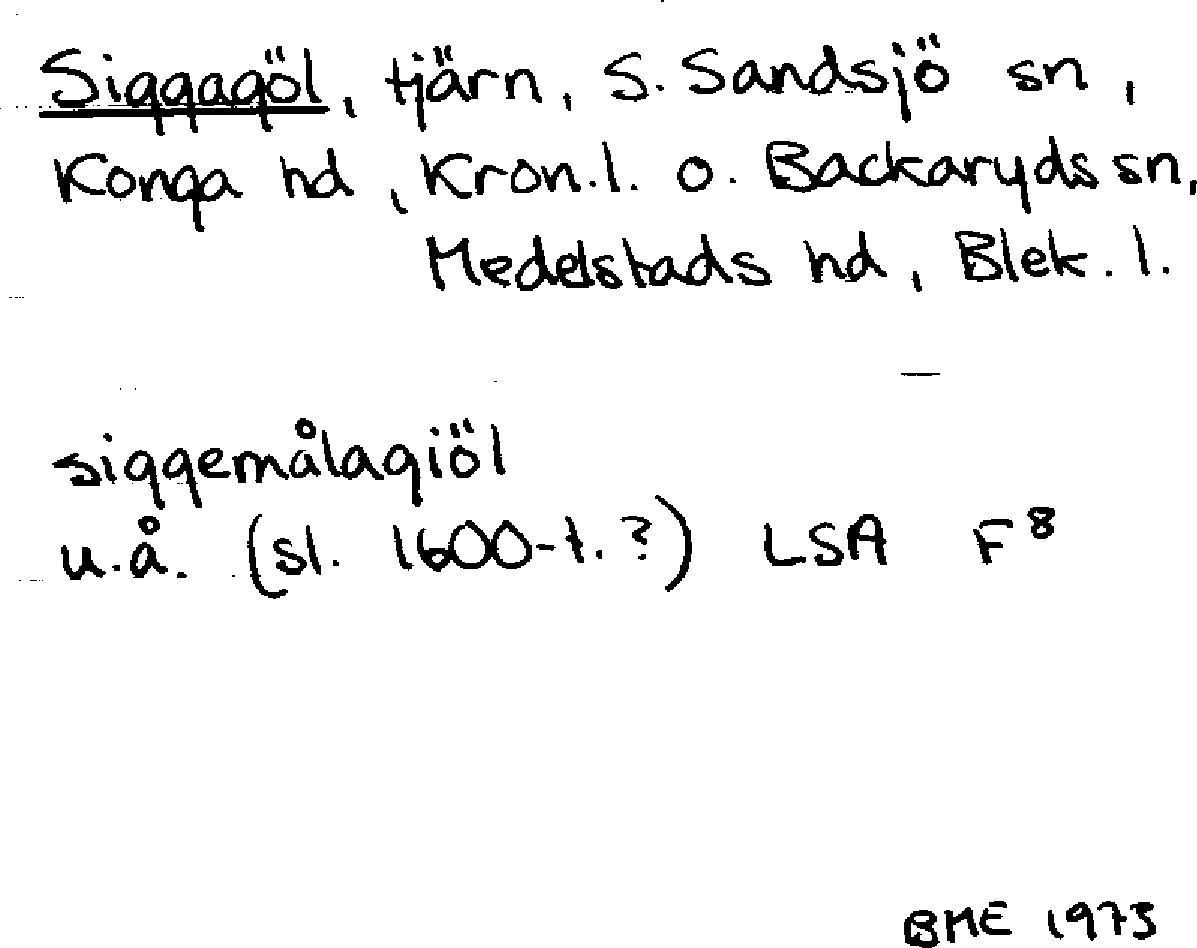 Siggagöl, tjärn, S. Sandsjö sn,
Konga hd, Kron.l. o. Backaryds sn,
Medelstads hd, Blek. l.
siggemålagiöl
u.å. (sl. 1600-t.?) LSA F8
BME 1973